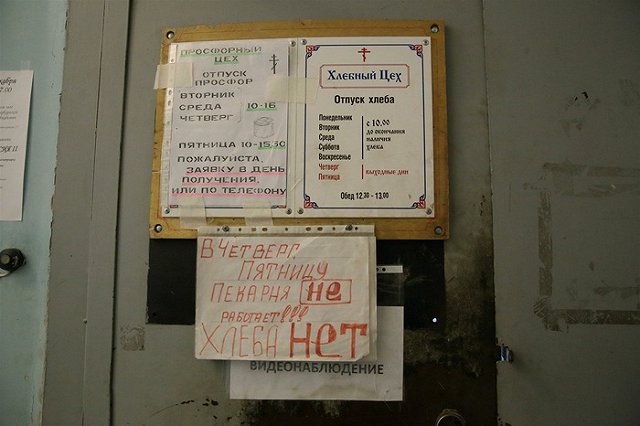 ПРОСФОРНЫЙ
ЦЕХ
ОТПУСК
ПРОСФОР
ВТОРНИК
СРЕДА 10-16
ЧЕТВЕРГ
ПЯТНИЦА 10-15.30
ПОЖАЛУЙСТА,
ЗАЯВКУ В ДЕНЬ
ПОЛУЧЕНИЯ,
ИЛИ ПО ТЕЛЕФОНУ
Хлебный Цех
Отпуск хлеба
Понедельник
Вторник
Среда
Суббота
Воскресенье
с 10.00
до окончания
наличия
хлеба
Четверг
Пятница
выходные дни
Обед 12.30 - 13.00
В ЧЕТВЕРГ,
ПЯТНИЦУ
ПЕКАРНЯ НЕ
РАБОТАЕТ!!!
ХЛЕБА НЕТ
ВИДЕОНАБЛЮДЕНИЕ